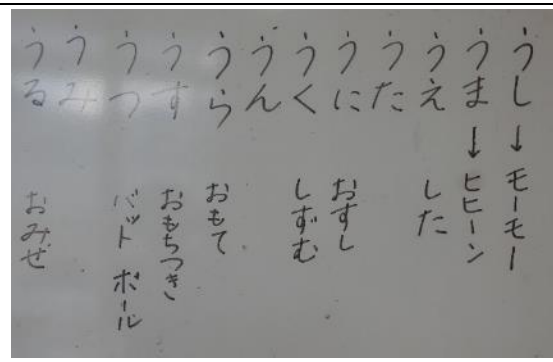 うし→モーモー
うま→ヒヒーン
うえ した
うた
うに おすし
うく しずむ
うん
うら おもて
うす おもちつき
うつ バット ボール
うみ
うる おみせ